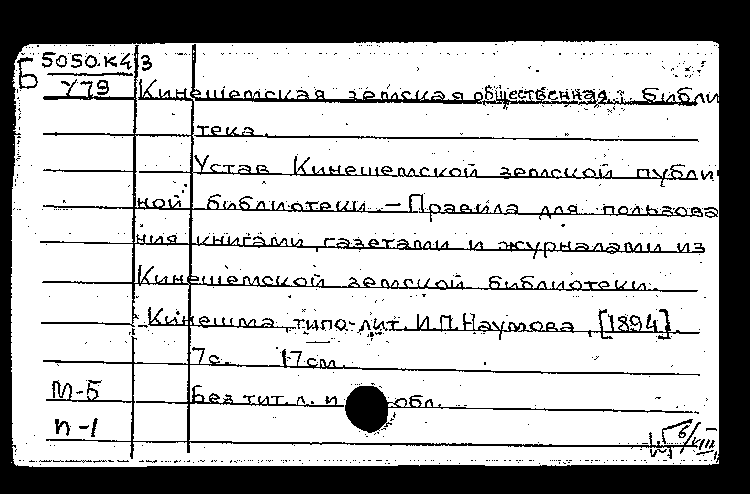 Б 5050.К4/3
У79
Кинешемская земская общественная библи
тека.
Устав Кинешемской земской публи
ной библиотеки. – Правила для пользова
ния книгами, газетами и журналами из
Кинешемской земской библиотеки.
Кинешма, типо-лит. И.П.Наумова, [1894].
7с. 17см.
М-Б
Без тит. л. и обл.
п-1
6/VIII